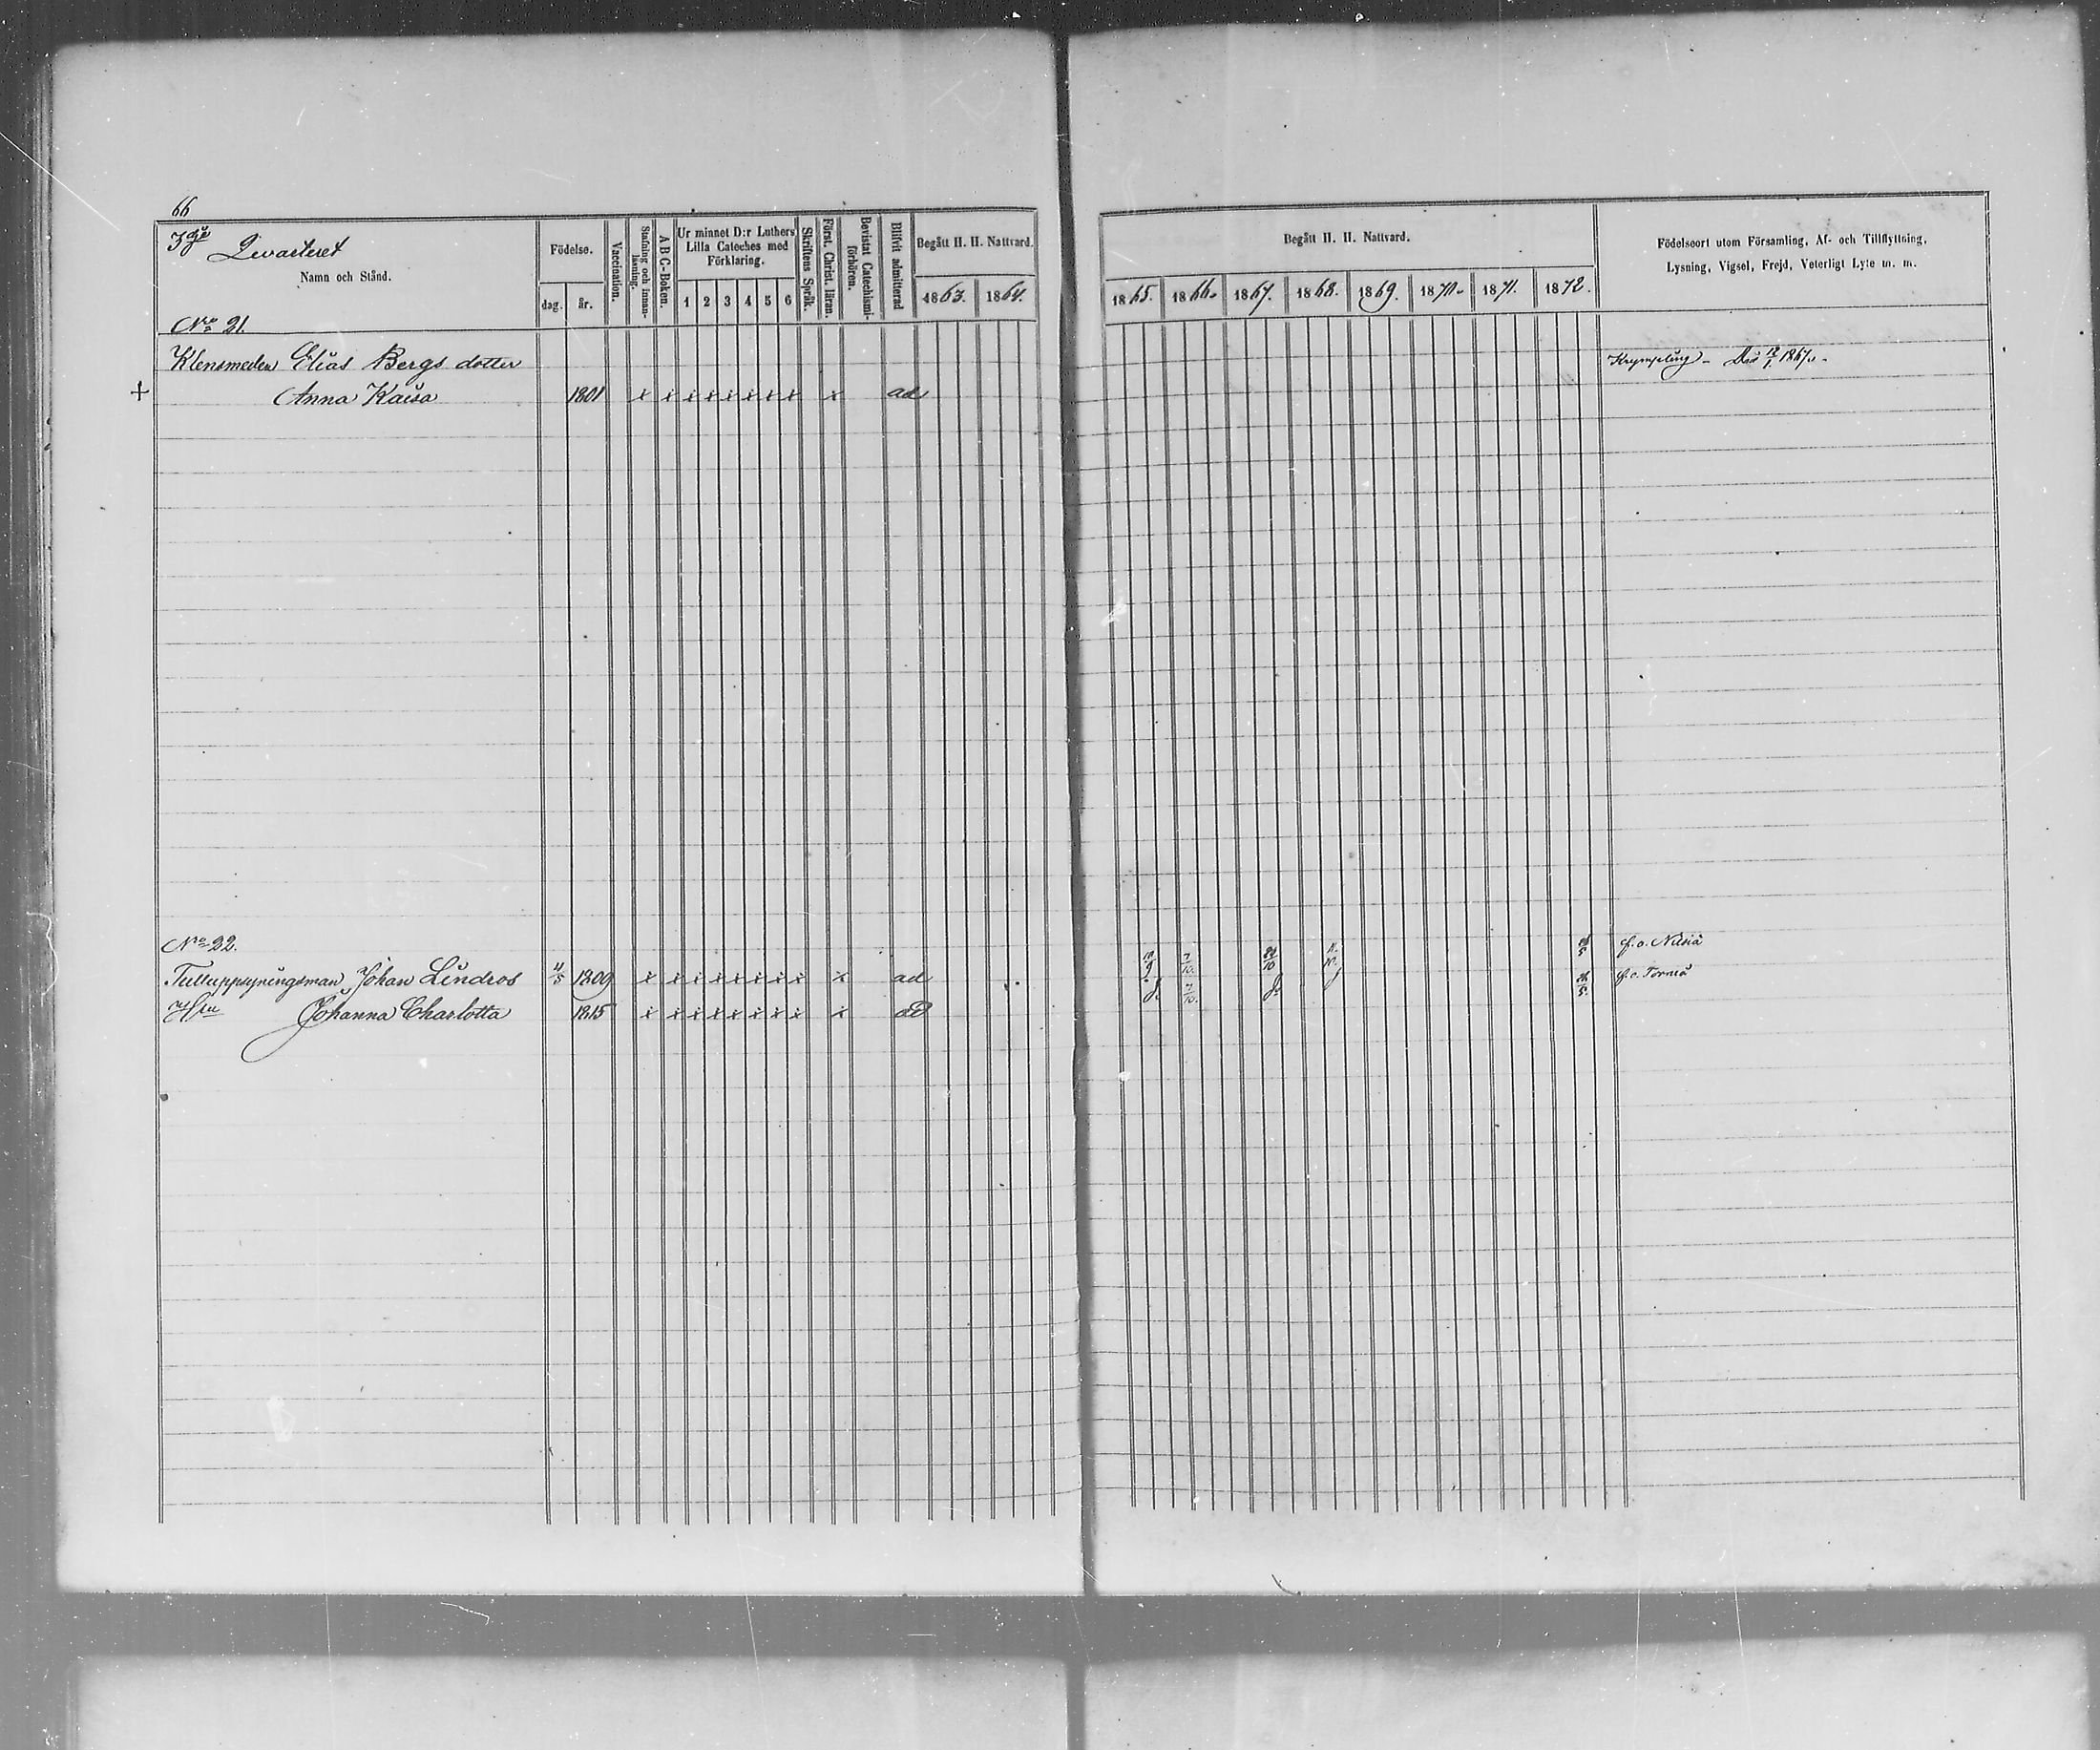 66
3dje Qvarteret
Namn och Stånd.
Födelse.
dag. år.
Vaccination.
Stafning och innan-läsning.
A B C-Boken.
Ur minnet D:r Luthers Lilla Cateches med Förklaring.
1 2 3 4 5 6
Skriftens Språk.
Först. Christ. lärav.
Bevistat Catechismi-förhören.
Blifvit admitterad
Begått H. H. Nattvard.
1863. 1864.
Begått H. H. Nattvard.
1865. 1866. 1867. 1868. 1869. 1870. 1871. 1872.
Födelseort utom Församling, Af- och Tillflyttning,
Lysning, Vigsel, Frejd, Veterligt Lyte m. m.
No 21.
Klensmeden Elias Bergs dotter Krympling - Död 12/1 1867.
+ Anna Kaisa 1801 x x x x x x x x x ad
No 22. f. o. Nilsiä
Tulluppsyningsman Johan Lindros 4/5 1809 x x x x x x x x x ad f. o. Torneå
Hstu Johanna Charlotta 1815 x x x x x x x x x ad